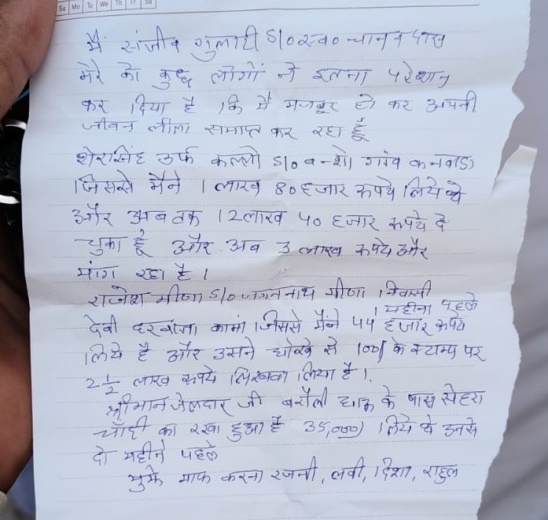 Sa Mo Tu We Th Fr Sa
मैं संजीव गुलाटी S/o स्व० चानन दास
मेरे को कुछ लोगों ने इतना परेशान
कर दिया है कि मैं मजबूर हो कर अपनी
जीवन लीला समाप्त कर रहा हूँ
शेरसिंह उर्फ कल्लो S/o बन्शी गांव कनवाडा
जिससे मैने 1 लाख 80 हजार रूपये लिये थे
और अब तक 12 लाख 40 हजार रूपये दे
चुका हूँ और अब 3 लाख रूपये और
मांग रहा है।
राजेश मीणा S/o जगन्नाथ मीणा निवासी
1 महीना पहले
देवी दरवाजा कामां जिससे मैंने 44 हजार रूपये
लिये है और उसने धोखे से 100/ के स्टाम्प पर
2 1/2 लाख रूपये लिखवा लिया है।
श्रीमान जेलदार जी बरौली के पास सेहरा
चाँदी का रखा हुआ है 35,000) लिये थे उनसे
दो महीने पहले
मुझे माफ करना रजनी, लवी, दिशा, राहुल